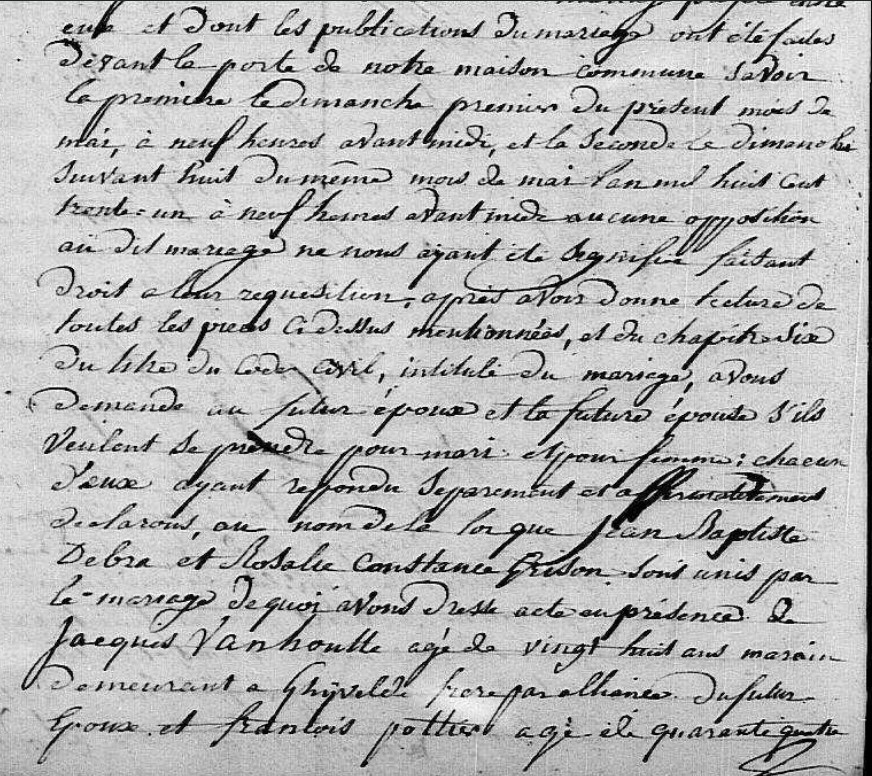 eux et dont les publications du mariage ont été faites
devant la porte de notre maison commune savoir
la premiere le dimanche premier du présent mois de
mai, à neuf heures avant midi, et la seconde le dimanche
suivant huit du même mois de mai l'an mil huit cent
trente-un à neuf heures avant midi aucune opposition
au dit mariage ne nous ayant été signifié faisant
droit a leur requesition, après avoir donné lecture de
toutes les pieces ci dessus mentionnées, et du chapitre six
du titre du code civil, intitulé du mariage, avons
demandé au futur époux et la future épouse s'ils
veulent se prendre pour mari et pour femme; chacun
d'eux ayant repondu séparément et affirmativement
declarons, au nom de la loi que Jean Baptiste
Debra et Rosalie Constance Grison sont unis par
le mariage de quoi avons dressé acte en présence de
Jacques Vanhoutte agé de vingt huit ans marain
demeurant a Ghyvelde frere par alliance du futur
Epoux et francois pottier agé de quarante quatre